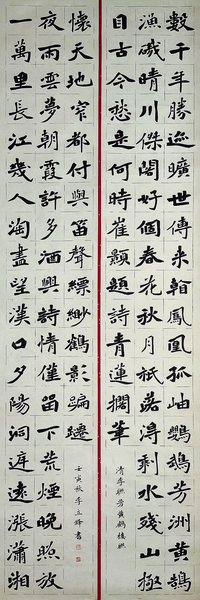 數千年勝迹曠世傳来看鳳凰孤岫鸚鵡芳洲黃鶴
漁磯晴川傑閣好個春花秋月祇落得剩水殘山極
目古今愁是何時崔顥題詩青蓮擱筆
清李聯芳黃鶴樓聯
一萬里長江幾人淘盡望漢口夕陽洞庭遠漲瀟湘
夜雨雲夢朝霞許多酒興詩情僅留下荒煙晚照放
懷天地窄都付與笛聲縹緲鶴影蹁躚
壬寅秋李立鋒書